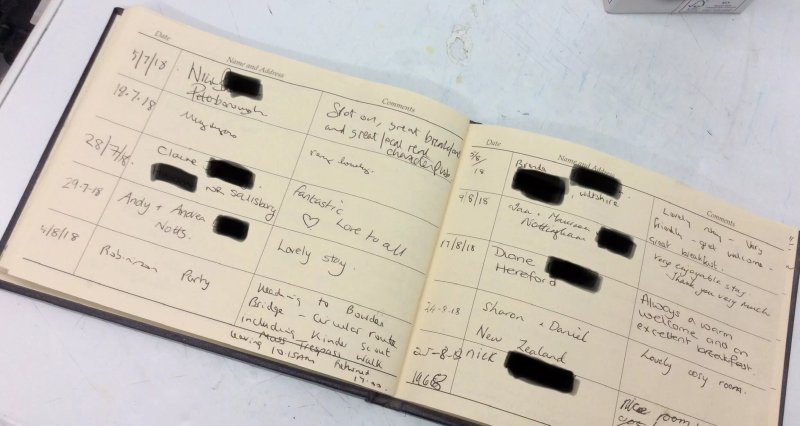 Date
Name and Address
Comments
5/7/18
Peterborough
Spot on, great breakfast
and great local real
character pub
18.7.18
very lovely.
28/7/18.
Claire
NR Salisbury
Fantastic
♡ Love to all
29.7.18
Andy + Andrea
Notts.
Lovely stay.
4/8/18
Robinson Party
Walking to Bowden
Bridge - Circular route
including Kinder Scout
Mass Trespass walk
leaving 10.15AM Returned
17:00.
Date
Name and Address
Comments
18
Brenda
, Wiltshire
Lovely stay - Very
friendly - welcome -
Great breakfast.
9/8/18
+ Maureen
Nottingham
Very enjoyable stay.
Thank you very much
17/8/18
Diane
Hereford
Always a warm
welcome and an
excellent breakfast.
24-8-18
Sharon + Daniel
New Zealand
Lovely cosy room.
25-8-18
nick
nice room